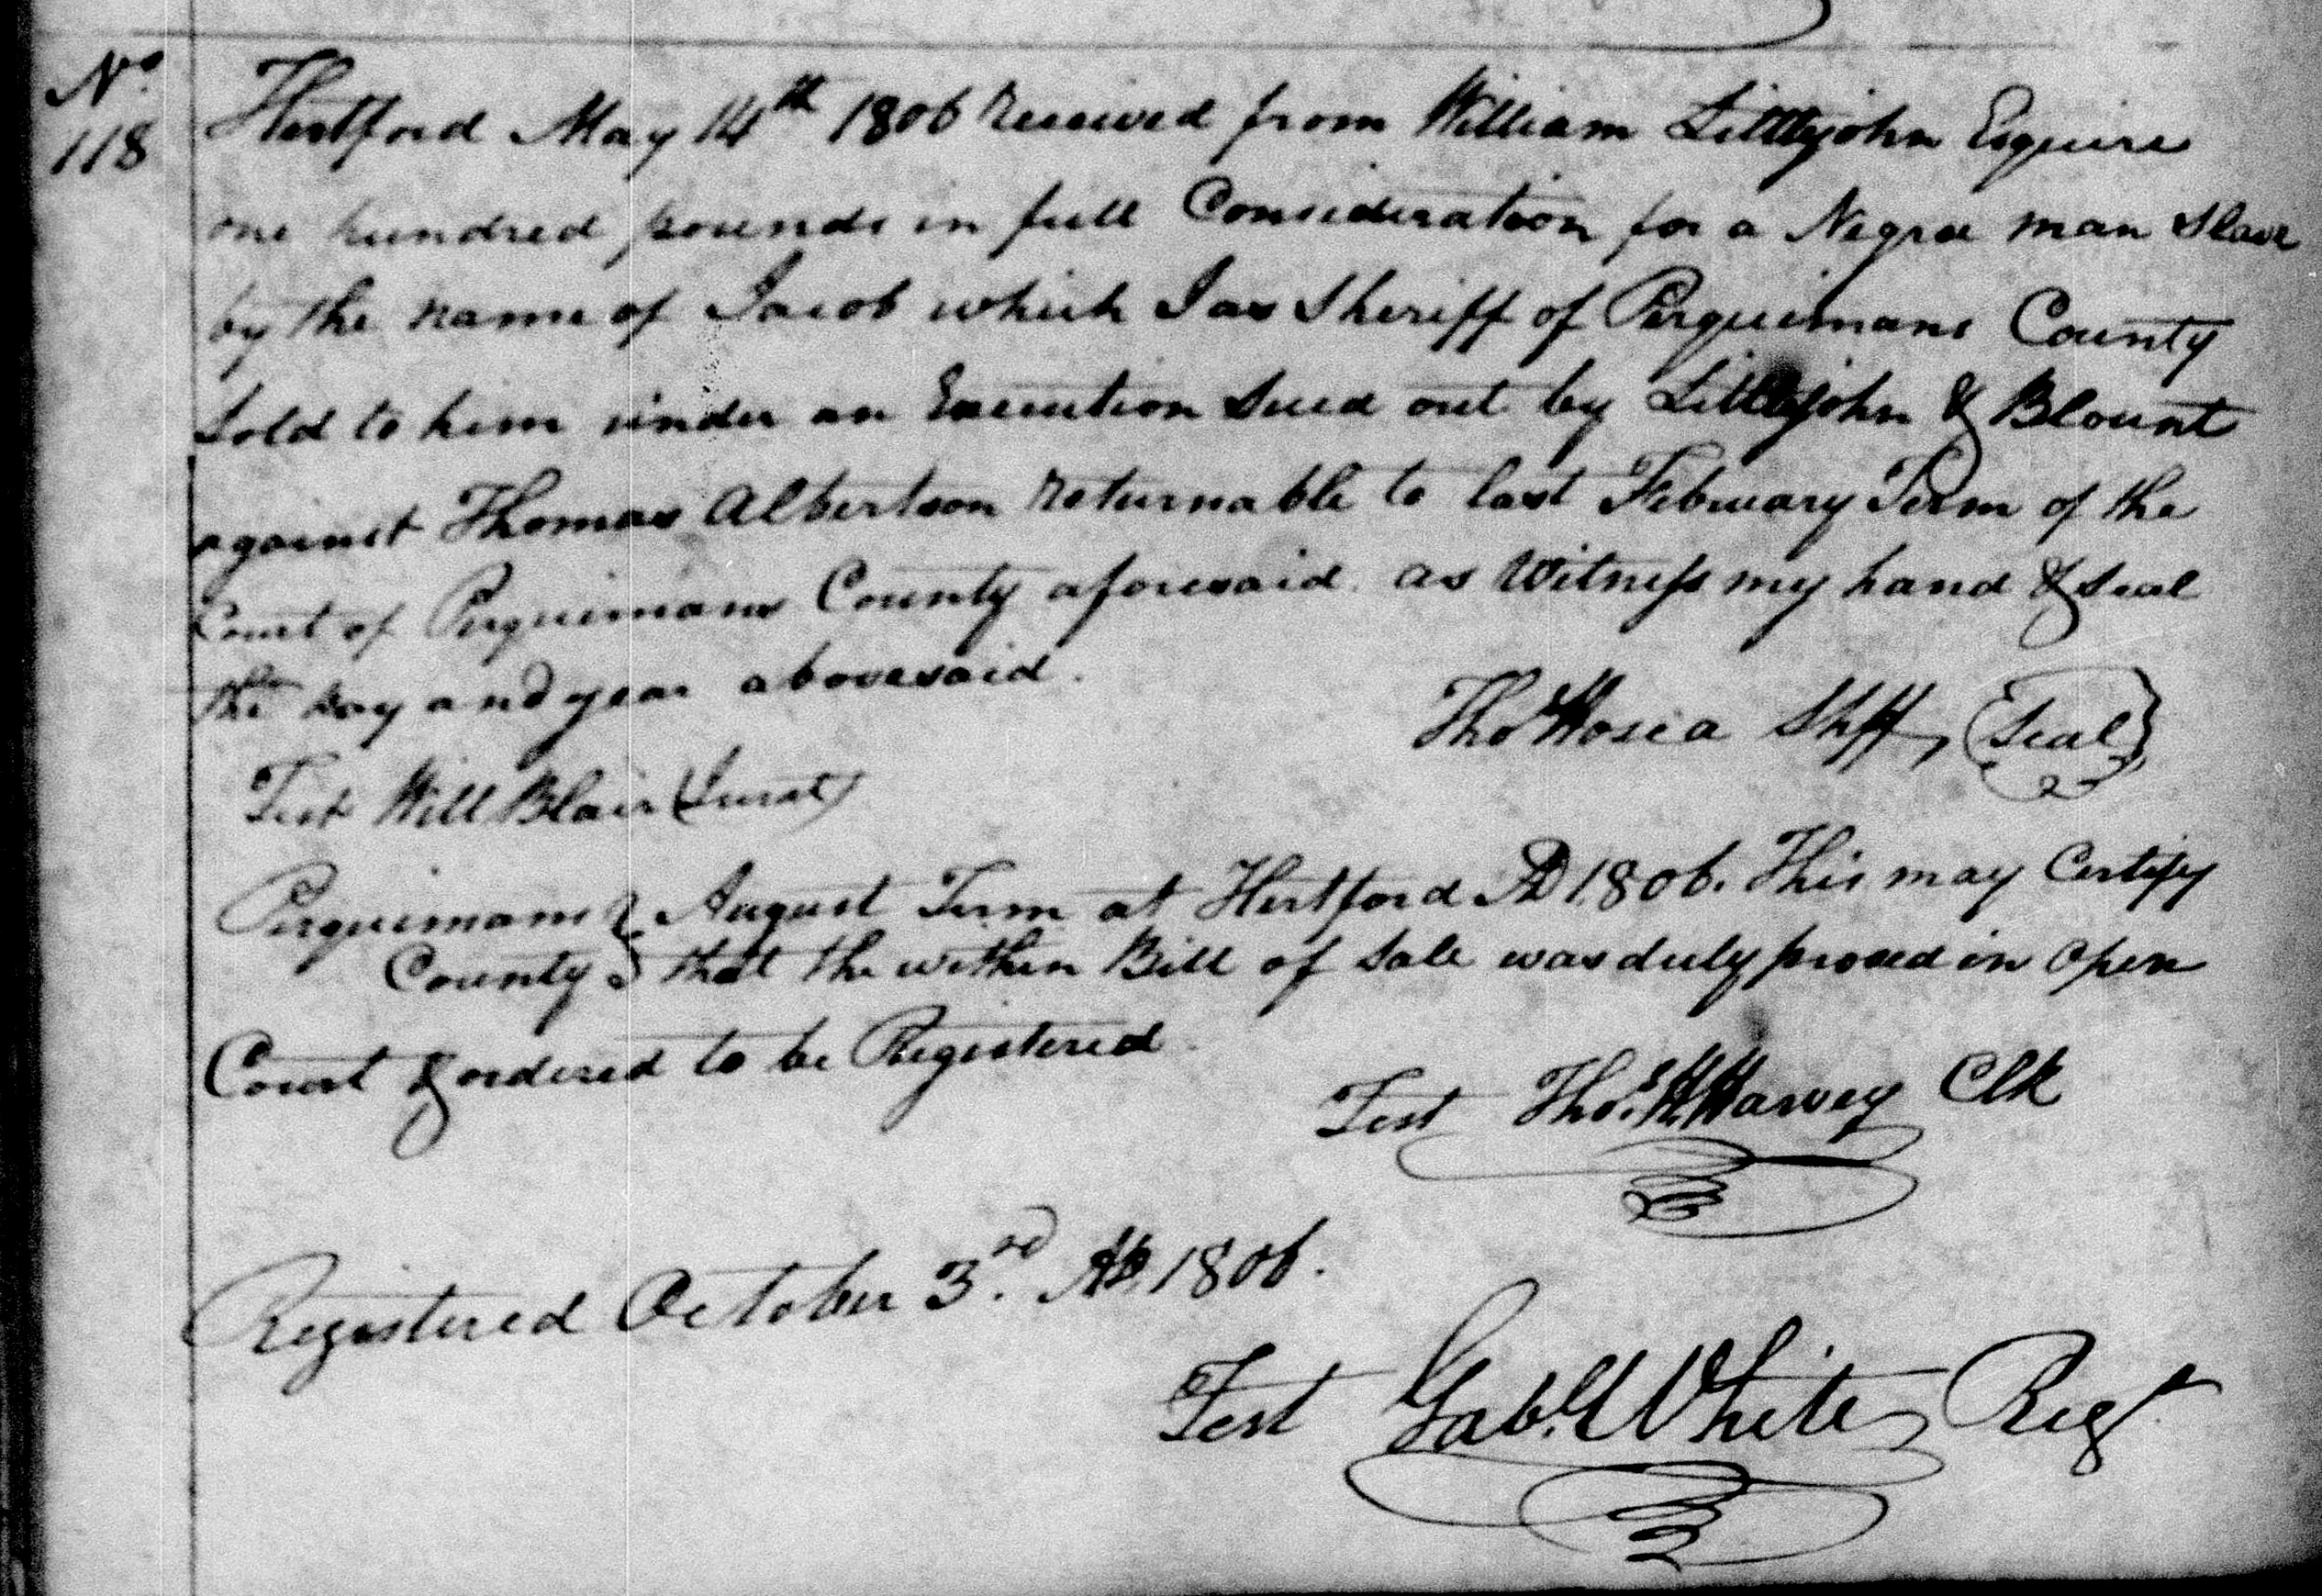 No.
118
Hertford May 14th 1806 received from William Littlejohn Esquire
one hundred pounds in full Consideration for a Negroe man Slave
by the name of Jacob which I as Sheriff of Perquimans County
Sold to him under an Execution Sued out by Littlejohn & Blount
against Thomas Albertson returnable to last February Term of the
Court of Perquimans County aforesaid. as Witness my hand & Seal
the day and year abovesaid.
Thos Hosea Shff, (Seal)
Test Will Blair (Jurat)
Perquimans } August Term at Hertford AD 1806. This may Certify
County } that the within Bill of Sale was duly proved in open
Court & ordered to be Registered
Test Thos. H Harvey Clk
Registered October 3rd. AD 1806.
Test Gab. White Regr